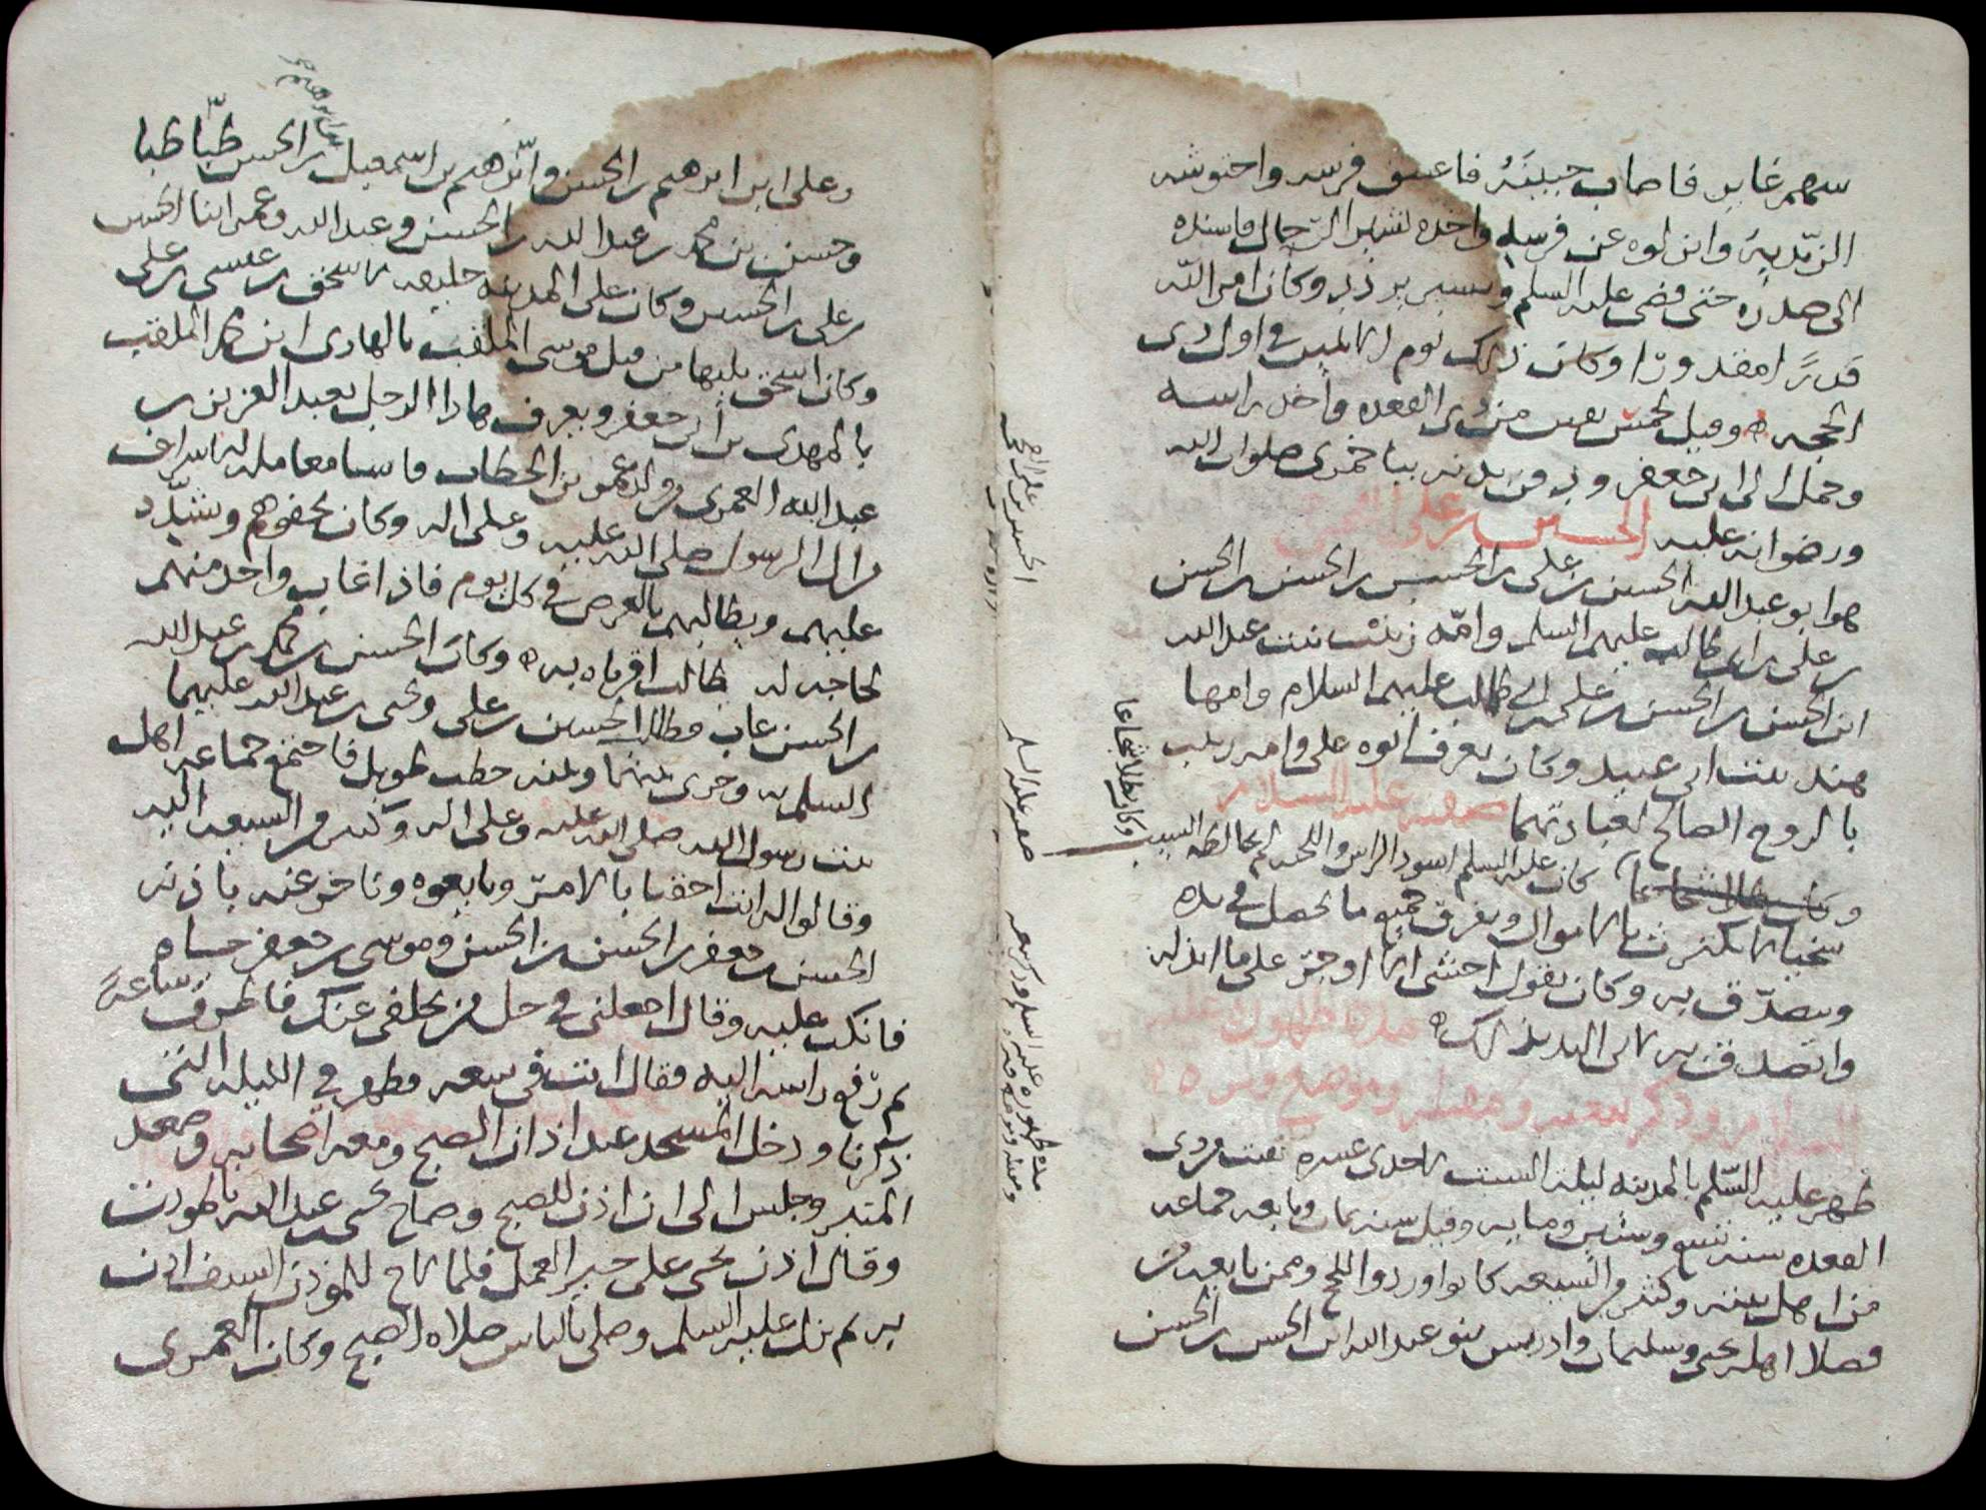 سهم غاير فاصاب جبينَهُ فاعتنق فرسه واحتوشه
الزيّدية وانزلوه عن فرسه واخذه لشير الرحال فاسنده
الى صدره حتى قضى عليه السلم وكان امر الله
قدرًا مقدورًا وكان ذلك يوم الاثنين في اول ذى
الحجه ه وقيل لخمس بقين من ذى القعده واخذ راسه
وحمل الى ابى جعفر ودفن بدنه بباخمرى صلوات الله
ورضوانه عليه الحسين بن على الفخى
هو ابو عبد الله الحسين بن على بن الحسن بن الحسن بن الحسن
بن على بن ابى طالب عليهم السلم وامّه زينب بنت عبد الله
ابن الحسن بن الحسن بن على بن ابى طالب عليهم السلام وامها
هند بنت ابى عبيدة وكان يعرف ابوه على وامه زينب
بالزوج الصالح لعبادتهما صفته عليه السلام
وكان بطلا شجاعا كان عليه السلم اسود الراس واللحيه لم يخالطه الشيب
وكان بطلا شجاعا
سخيا لا يكترث بالاموال ويفرق جميع ما يحصل في يده
ويتصدّق به وكان يقول اخشى الا اوجر على ما ابذله
واتصدق به لانى اليه بذلك ه مدة ظهوره عليه
السلام وذكر بيعته ومقتله وموضع قبره ه
ظهر عليه السّلم بالمدينه ليلة السبت لاحدى عشره بقيت من ذى
القعده سنه تسع وستين ومايه وقيل سنه ثمان وبايعه جماعه
من اهل بيته وكثير من الشيعه كانوا وردوا للحج وممن بايعه من
فضلا اهله يحيى وسليمان وادريس بنو عبد الله ابن الحسن بن الحسن
الحسين بن على الفخى
صفته عليه السلم
مدة ظهوره عليه السلم وذكر بيعته
ومقتله وموضع قبره
وعلى ابن ابرهيم بن الحسن وابرهيم بن اسمعيل بن الحسن طبّاطبا
وحسن بن محمد بن عبد الله بن الحسن وعبد الله وعمر ابنا الحسن
بن على بن الحسين وكان على المدينه خليفه لاسحق بن عيسى بن على
وكان اسحق يليها من قبل موسى الملقب بالهادى ابن محمد الملقب
بالمهدى بن ابى جعفر ويعرف هذا الرجل بعبد العزيز بن
عبد الله العمرى من ولد عمر بن الخطاب فاسا معاملة الاشراف
من ال الرسول صلى الله عليه وعلى اله وكان يجفوهم ويشدّد
عليهم ويطالبهم بالعرض في كل يوم فاذا غاب واحد منهم
لحاجه له طالب اقرباه به ه وكان الحسن بن محمد بن عبد الله
بن الحسن غاب فطالب الحسين بن على ويحيى بن عبد الله عليهما
السلم به وجرى بينهما وبينه خطب طويل فاجتمع جماعه اهل
بيت رسول الله صلى الله عليه وعلى اله وكثير من الشيعه اليه
وقالوا له انت احقنا بالامر وبايعوه وتاخر عنه باذنه
الحسن بن جعفر بن الحسن بن الحسن وموسى بن جعفر جاه
فانكب عليه وقال اجعلنى في حل من تخلفى عنك فاطرق ساعةً
ثم رفع راسه اليه فقال انت فى سعه فظهر في الليله التى
ذكرنا ودخل المسجد عند اذان الصبح ومعه اصحابه وصعد
المنبر وجلس الى ان اذن للصبح وصاح يحيى بن عبد الله بالموذن
وقال اذن بحى على خير العمل فلما لاح للموذن السيف اذن
به ثم نزل عليه السلم وصلى بالناس صلاه الصبح وكان العمرى